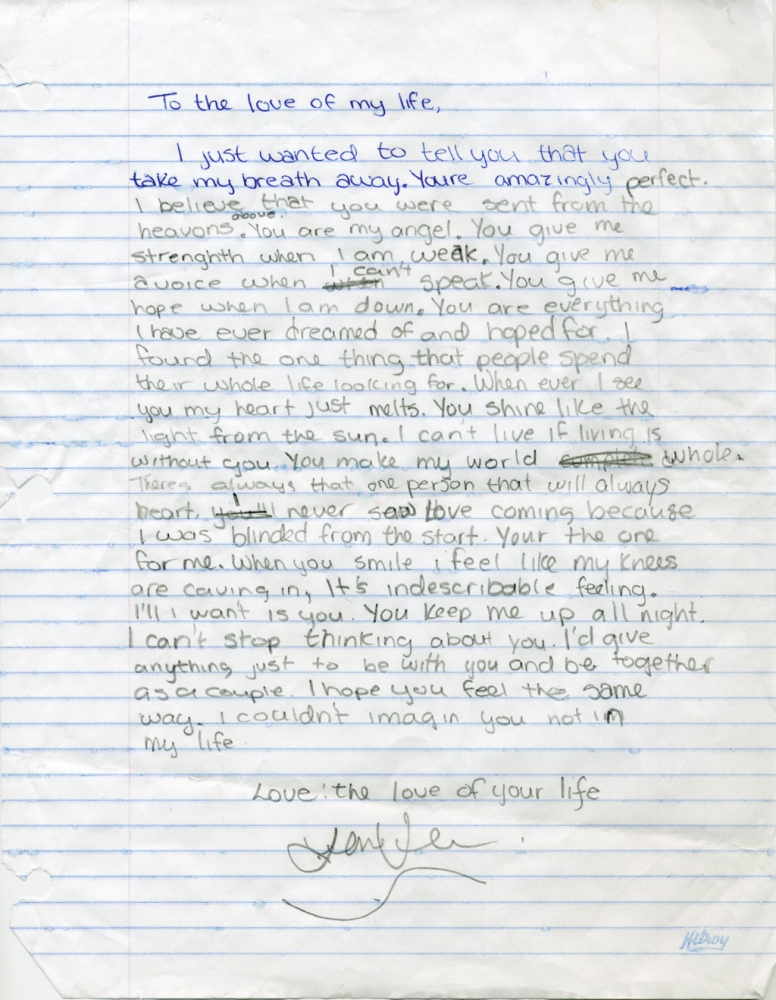 To the love of my life,
I just wanted to tell you that you
take my breath away. Youre amazingly perfect.
I believe that you were sent from the
heavons above. You are my angel. You give me
strenghth when I am weak. You give me
a voice when I can't speak. You give me
hope when I am down. You are everything
I have ever dreamed of and hoped for. I
found the one thing that people spend
their whole life looking for. When ever I see
you my heart just melts. You shine like the
light from the sun. I can't live if living is
without you. You make my world whole.
Theres always that one person that will always
heart. I never saw love coming because
I was blinded from the start. Your the one
for me. When you smile i feel like my knees
are caving in, It's indescribable feeling.
I'll i want is you. You keep me up all night.
I can't stop thinking about you. I'd give
anything just to be with you and be together
as a couple. I hope you feel the same
way. I couldn't imagin you not in
my life
Love: the love of your life
Hilroy